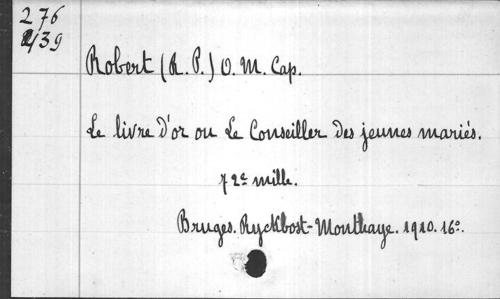 276
2/39
Robert (R. P.) O. M. Cap.
Le livre d'or ou Le Conseiller des jeunes mariés.
72e mille.
Bruges. Ryckbost-Monthaye. 1910. 16o.